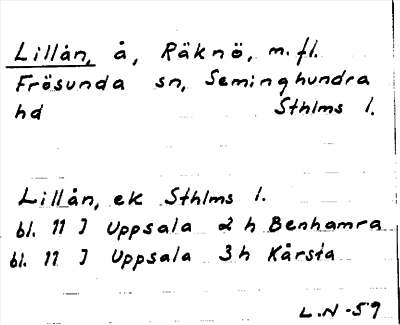 Lillån, å, Räknö, m.fl.
Frösunda sn, Seminghundra
hd Sthlms l.
Lillån, ek Sthlms l.
bl. 11 I Uppsala 2 h Benhamra
bl. 11 I Uppsala 3 h Kårsta
L.N-59